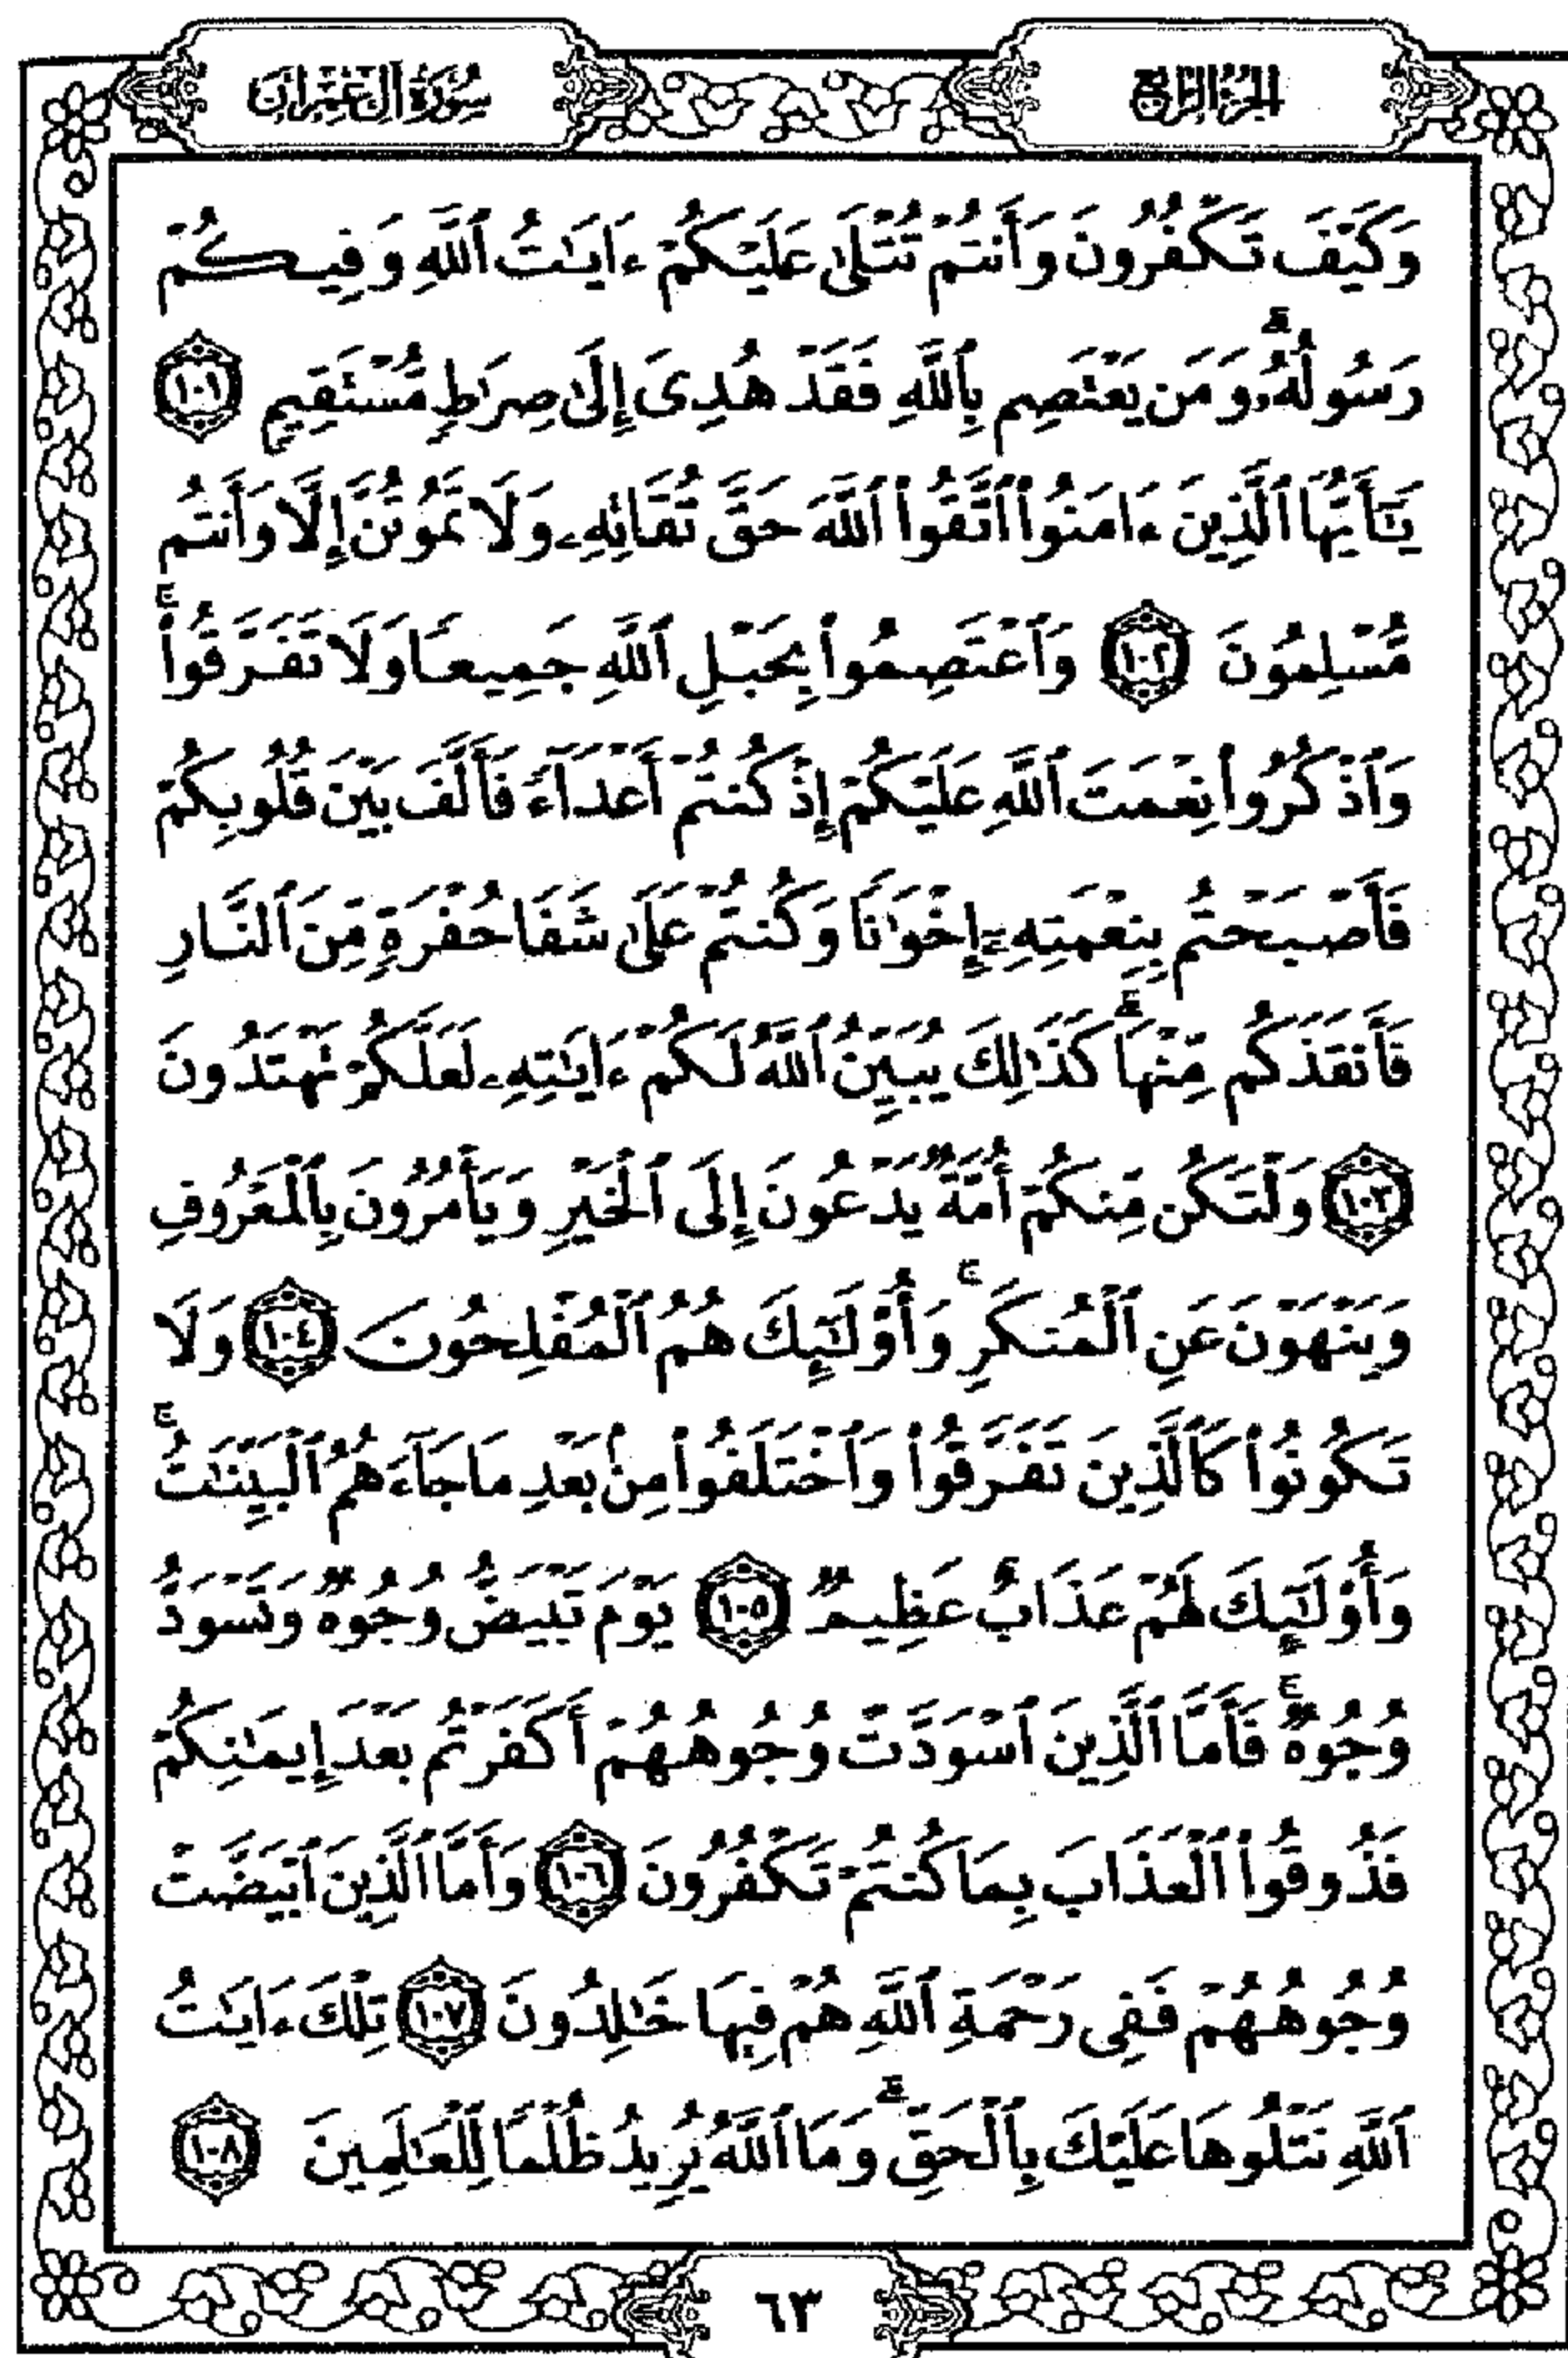 الجزء الرابع
سورة آل عمران
وَكَيْفَ تَكْفُرُونَ وَأَنتُمْ تُتْلَىٰ عَلَيْكُمْ ءَايَـٰتُ ٱللَّهِ وَفِيكُمْ
رَسُولُهُۥ ۗ وَمَن يَعْتَصِم بِٱللَّهِ فَقَدْ هُدِىَ إِلَىٰ صِرَٰطٍ مُّسْتَقِيمٍ ١٠١
يَـٰٓأَيُّهَا ٱلَّذِينَ ءَامَنُوا۟ ٱتَّقُوا۟ ٱللَّهَ حَقَّ تُقَاتِهِۦ وَلَا تَمُوتُنَّ إِلَّا وَأَنتُم
مُّسْلِمُونَ ١٠٢ وَٱعْتَصِمُوا۟ بِحَبْلِ ٱللَّهِ جَمِيعًا وَلَا تَفَرَّقُوا۟ ۚ
وَٱذْكُرُوا۟ نِعْمَتَ ٱللَّهِ عَلَيْكُمْ إِذْ كُنتُمْ أَعْدَآءً فَأَلَّفَ بَيْنَ قُلُوبِكُمْ
فَأَصْبَحْتُم بِنِعْمَتِهِۦٓ إِخْوَٰنًا وَكُنتُمْ عَلَىٰ شَفَا حُفْرَةٍ مِّنَ ٱلنَّارِ
فَأَنقَذَكُم مِّنْهَا ۗ كَذَٰلِكَ يُبَيِّنُ ٱللَّهُ لَكُمْ ءَايَـٰتِهِۦ لَعَلَّكُمْ تَهْتَدُونَ
١٠٣ وَلْتَكُن مِّنكُمْ أُمَّةٌ يَدْعُونَ إِلَى ٱلْخَيْرِ وَيَأْمُرُونَ بِٱلْمَعْرُوفِ
وَيَنْهَوْنَ عَنِ ٱلْمُنكَرِ ۚ وَأُو۟لَـٰٓئِكَ هُمُ ٱلْمُفْلِحُونَ ١٠٤ وَلَا
تَكُونُوا۟ كَٱلَّذِينَ تَفَرَّقُوا۟ وَٱخْتَلَفُوا۟ مِنۢ بَعْدِ مَا جَآءَهُمُ ٱلْبَيِّنَـٰتُ ۚ
وَأُو۟لَـٰٓئِكَ لَهُمْ عَذَابٌ عَظِيمٌ ١٠٥ يَوْمَ تَبْيَضُّ وُجُوهٌ وَتَسْوَدُّ
وُجُوهٌ ۚ فَأَمَّا ٱلَّذِينَ ٱسْوَدَّتْ وُجُوهُهُمْ أَكَفَرْتُم بَعْدَ إِيمَـٰنِكُمْ
فَذُوقُوا۟ ٱلْعَذَابَ بِمَا كُنتُمْ تَكْفُرُونَ ١٠٦ وَأَمَّا ٱلَّذِينَ ٱبْيَضَّتْ
وُجُوهُهُمْ فَفِى رَحْمَةِ ٱللَّهِ هُمْ فِيهَا خَـٰلِدُونَ ١٠٧ تِلْكَ ءَايَـٰتُ
ٱللَّهِ نَتْلُوهَا عَلَيْكَ بِٱلْحَقِّ ۗ وَمَا ٱللَّهُ يُرِيدُ ظُلْمًا لِّلْعَـٰلَمِينَ ١٠٨
٦٣